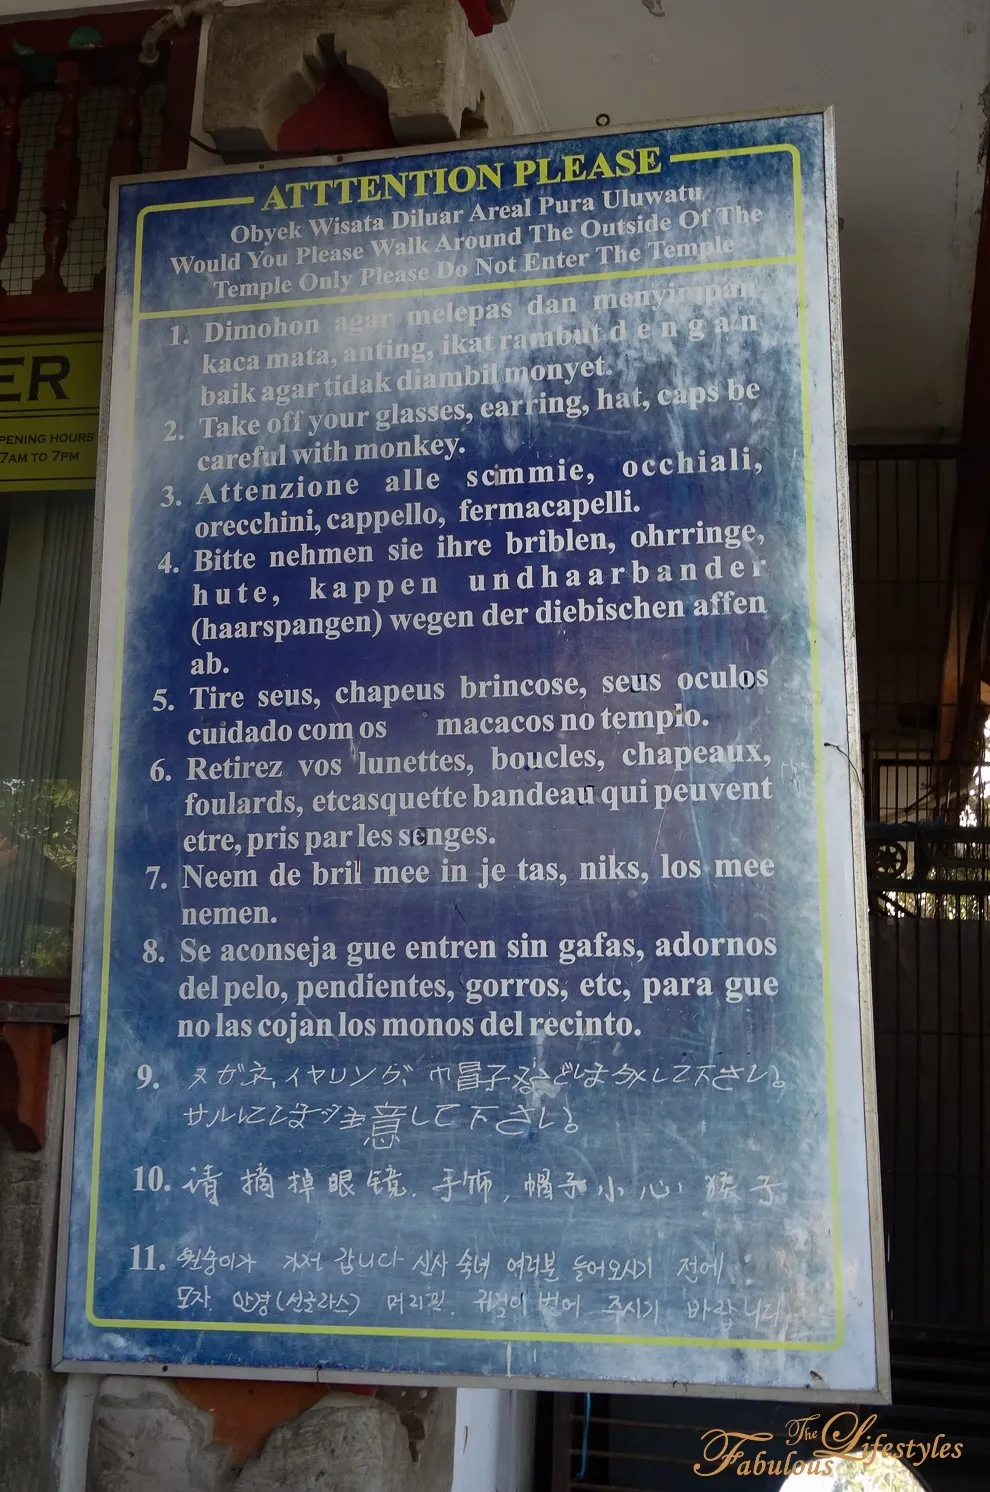 ATTTENTION PLEASE
Obyek Wisata Diluar Areal Pura Uluwatu
Would You Please Walk Around The Outside Of The
Temple Only Please Do Not Enter The Temple
1. Dimohon agar melepas dan menyimpan
kaca mata, anting, ikat rambut dengan
baik agar tidak diambil monyet.
2. Take off your glasses, earring, hat, caps be
careful with monkey.
3. Attenzione alle scimmie, occhiali,
orecchini, cappello, fermacapelli.
4. Bitte nehmen sie ihre briblen, ohrringe,
hute, kappen undhaarbander
(haarspangen) wegen der diebischen affen
ab.
5. Tire seus, chapeus brincose, seus oculos
cuidado com os macacos no templo.
6. Retirez vos lunettes, boucles, chapeaux,
foulards, etcasquette bandeau qui peuvent
etre, pris par les senges.
7. Neem de bril mee in je tas, niks, los mee
nemen.
8. Se aconseja gue entren sin gafas, adornos
del pelo, pendientes, gorros, etc, para gue
no las cojan los monos del recinto.
9. メガネ、イヤリング、帽子などはずして下さい。
サルにはご注意して下さい。
10. 请 摘 掉 眼 镜. 手饰, 帽子 小 心 猴 子
11. 원숭이가 가져 갑니다 신사 숙녀 여러분 들어오시기 전에
모자. 안경(선글라스) 머리핀. 귀걸이 벗어 주시기 바랍니다
ER
PENING HOURS
7AM TO 7PM
The Fabulous Lifestyles